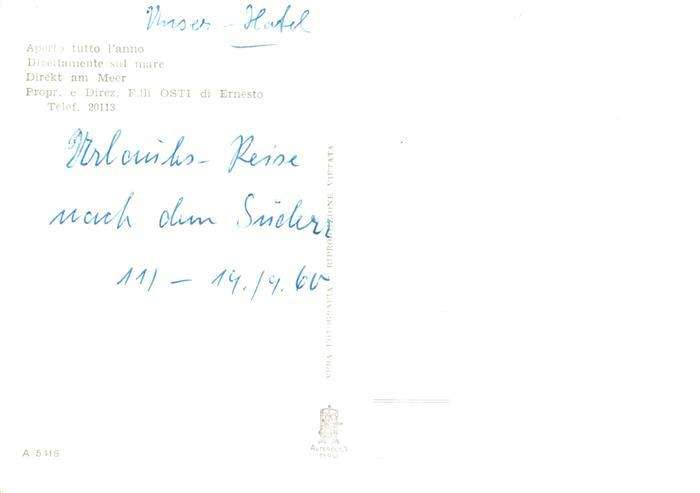 Unser - Hotel
Aperto tutto l'anno
Direttamente sul mare
Direkt am Meer
Propr. e Direz. F.lli OSTI di Ernesto
Telef. 20113
Urlaubs- Reise
nach dem Süden
11) - 19./9. 60
VERA FOTOGRAFIA - RIPRODUZIONE VIETATA
A 5416